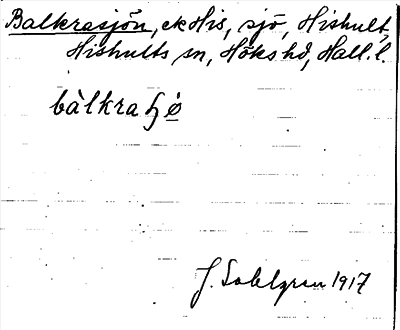 Balkrasjön, ek His, sjö, Hishult,
Hishults sn, Höks hd, Hall. l.
bàlkra ꜧø
J. Sahlgren 1917